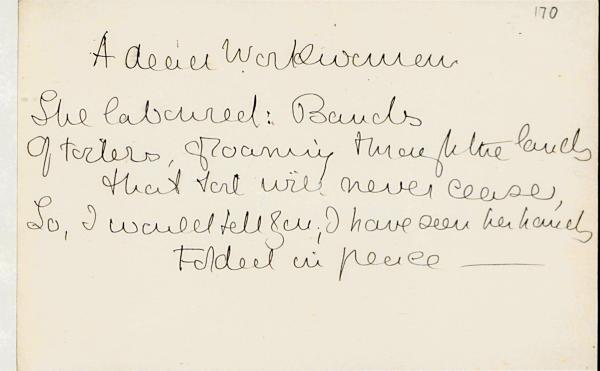 170
A dead Workwoman
She laboured: Bands
Of toilers, roaming through the lands
that toil will never cease,
Lo, I would tell you, I have seen her hands
Folded in peace —